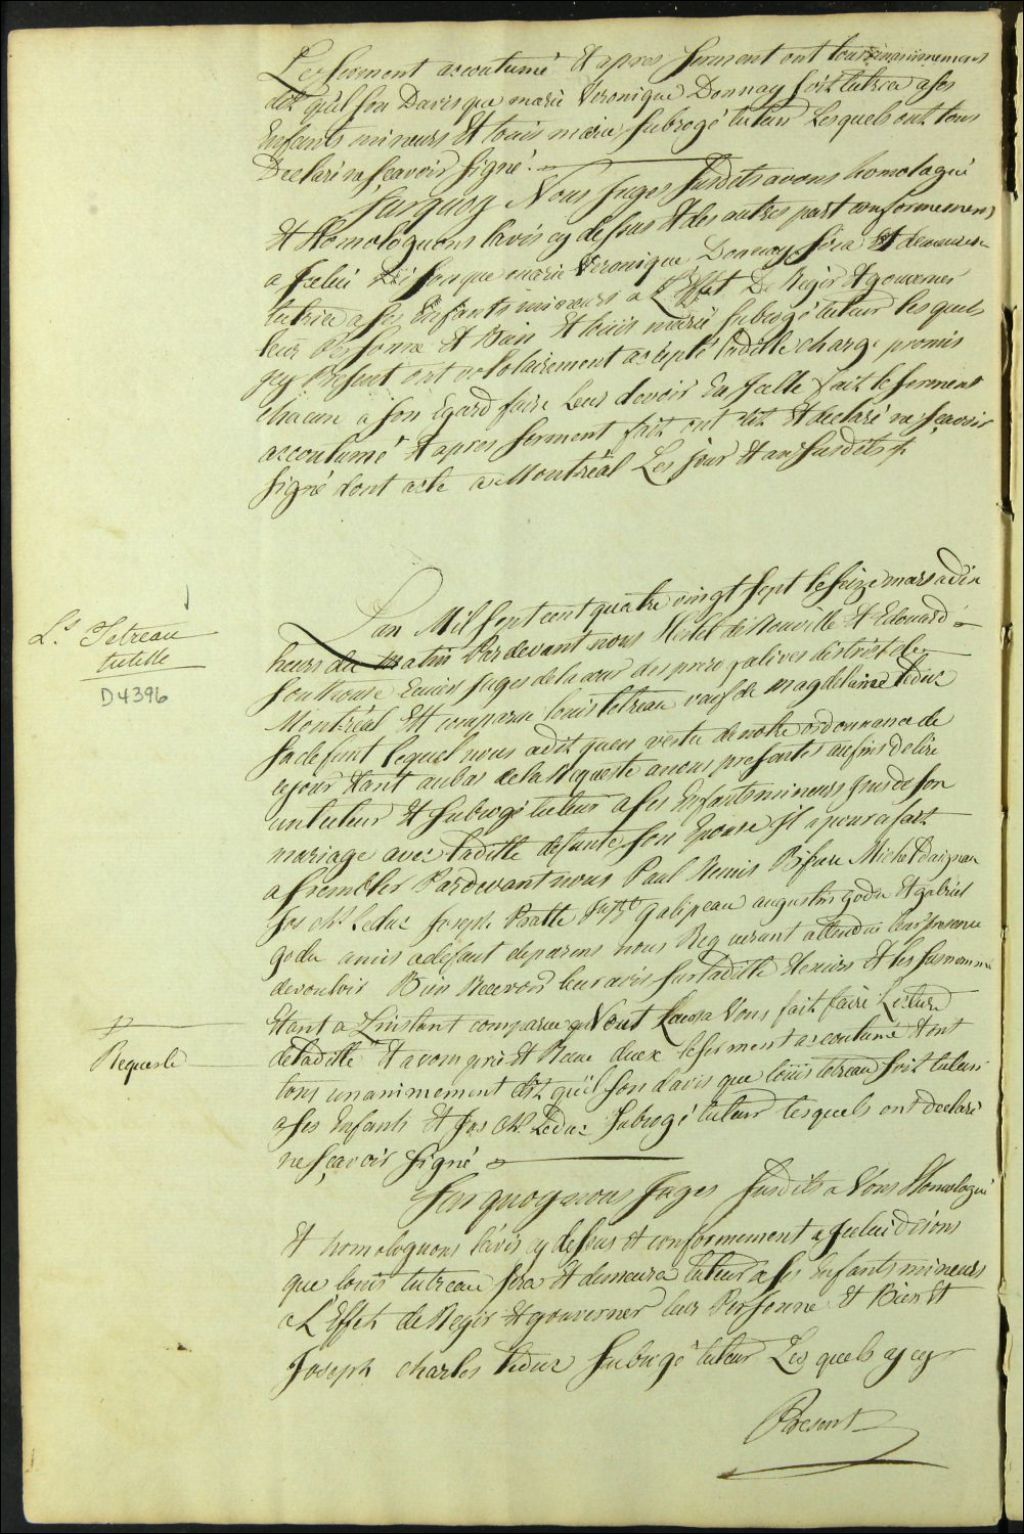 Le serment accoutumé Et apres serment ont tous unanimement
dit qu'il son Davis que marie Veronique Donnay soit tutrice a ses
Enfants mineurs Et louis marie subrogé tuteur Lesquels ont tous
Declaré ne sçavoir signé.
Surquoy Nous Juges susdits avons homologué
Et Homologuons lavis cy dessus Et des autres part conformement
a Icelui que marie Veronique Donnay sera Et demeurera
tutrice a ses Enfants mineurs a L'Effet De Regir Et gouverner
leur Personne Et Bien Et louis marie subrogé tuteur lesquels
icy Present ont volotairement accepté ladille charge promis
chacun a son Egard faire leur devoir En Icelle fait le serment
accoutumé Et apres serment fait ont dit Et declaré ne sçavoir
signé dont acte a Montréal Les jour Et an susdits
Lan Mil sept cent quatre vingt sept le seize mars a dix
L.s Tetreau
tutelle
D4396
heurs du matin Par devant nous Hertel de Rouville Et Edouard
Southouse Ecuiers Juges de la cour des district de
Montréal Est comparu louis tetreau veuf de magdelaine leduc
sa defunt lequel nous a dit quen vertu de notre ordonnance de
ce jour Etant au bas de la Requeste a nous presentes aufins delire
un tuteur Et subrogé tuteur a ses Enfants mineurs Jssus de son
mariage avec ladille defunte son Epouse Jl a pour ce fait
assembler Par devant nous Paul Michel
Jos Ch. Leduc Joseph Pratte Galipeau augustin godu Et gabriel
godu amis a defaut de parens nous Requerant attendu leur presence
de vouloir Bien Recevoir leur avis sur ladille Et les susnommé
Etant a Linstant comparue Nous fait faire Lecture
Requeste
de ladille Et avons pris Et Recue deux le serment accoutumé Et ont
tous unanimement dit quil son davis que louis tetreau soit tuteur
a ses Enfants Et Jos Ch. Leduc Subrogé tuteur lesquels ont declaré
ne sçavoir signé
Sur quoy nous Juges susdits a Vons Homologué
Et homologuons lavis cy dessus et conformement a Jcelui disons
que louis tutreau sera Et demeura tuteur a ses Enfants mineurs
a L'Effet de Regir Et gouverner leur Personne Et Bien Et
Joseph charles leduc subrogé tuteur Les quels
Present